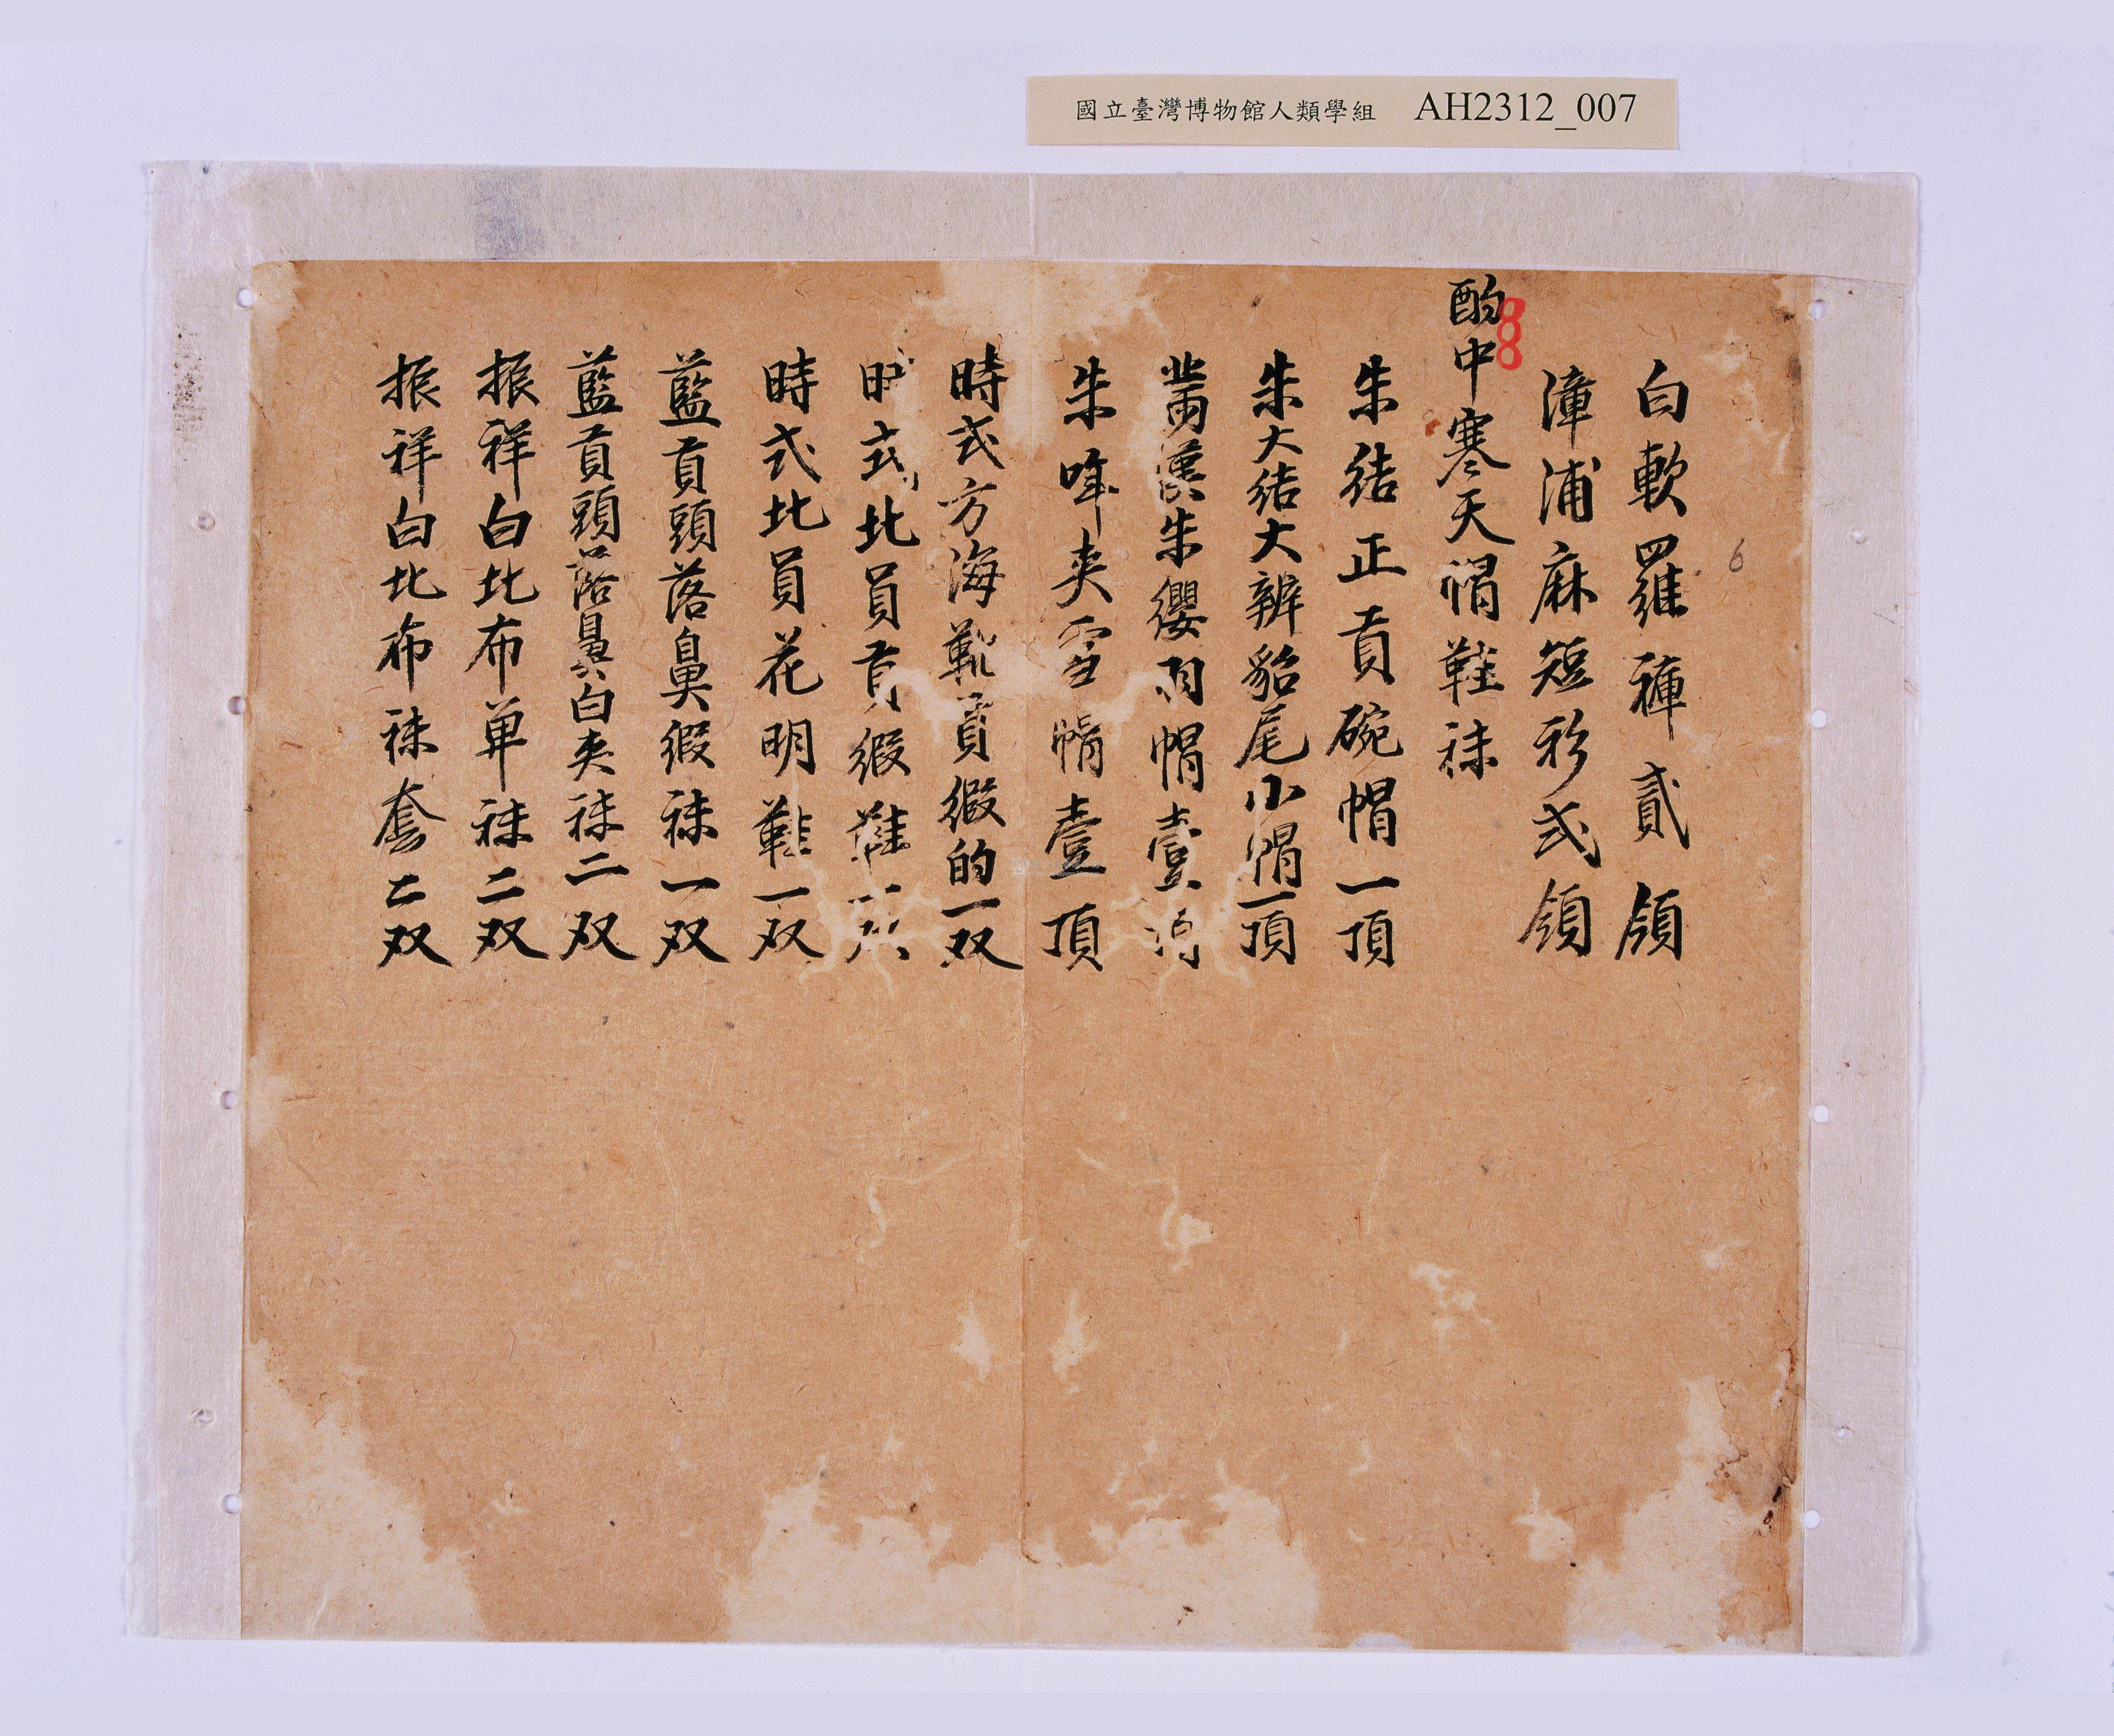 國立臺灣博物館人類學組 AH2312_007
6
白軟羅褲貳領
漳浦麻短衫弍領
酌中寒天帽鞋袜
朱結正貢碗帽一頂
朱大結大辨貂尾小帽一頂
朱纓雨帽壹
朱夾雪帽壹頂
時式方海靴貢緞的一双
式北員貢緞鞋
時式北員花明鞋一双
藍貢頭落鼻緞袜一双
藍貢頭落鼻白夾袜二双
振祥白北布单袜二双
振祥白北布袜套二双